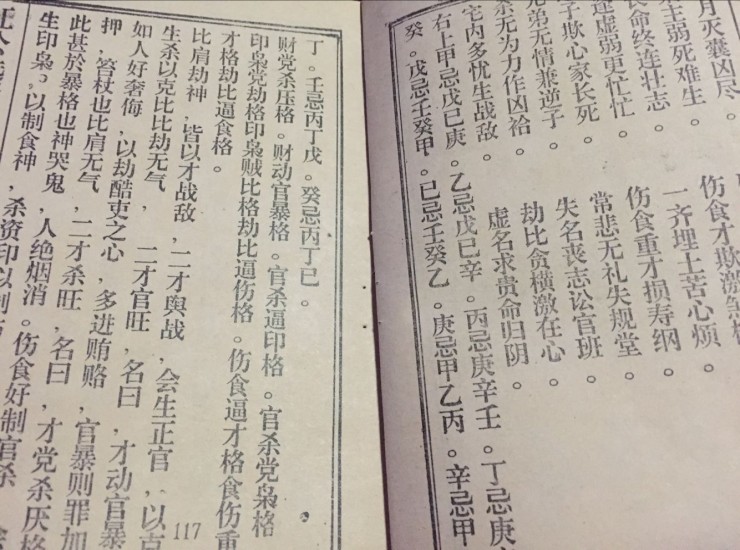 月灭囊凶尽。
生弱死难生。 伤食才欺激
命终连壮志。 一齐埋土苦心烦。
逢虚弱更忙忙 伤食重才损寿纲。
子欺心家长死。 常悲无礼失规堂。
兄弟无情兼逆子。 失名丧志讼官班。
杀无为力作凶祫 劫比贪横激在心
宅内多忧生战敌。 虚名求贵命归阴。
右上甲忌戊己庚 乙忌戊己辛 丙忌庚辛壬。丁忌庚
癸。戊忌壬癸甲。己忌壬癸乙。庚忌甲乙丙。辛忌甲
丁。壬忌丙丁戊。癸忌丙丁己。
财党杀压格。财动官暴格。官杀逼印格。官杀党枭格
印枭党劫格印枭贼比格劫比逼伤格。伤食逼才格食伤重
才格劫比逼食格。
比肩劫神,皆以才战敌,二才舆战,会生正官,以克
生杀以克比比劫无气, 二才官旺,名曰,才动官暴
如人好奢侮,以劫酷吏之心,多进贿赂,官暴则罪加
押,笞杖也比肩无气,二才杀旺,名曰,才党杀厌格
此甚於暴格也神哭鬼 人绝烟消。伤食好制官杀
生印枭。以制食神,杀资印以制
117